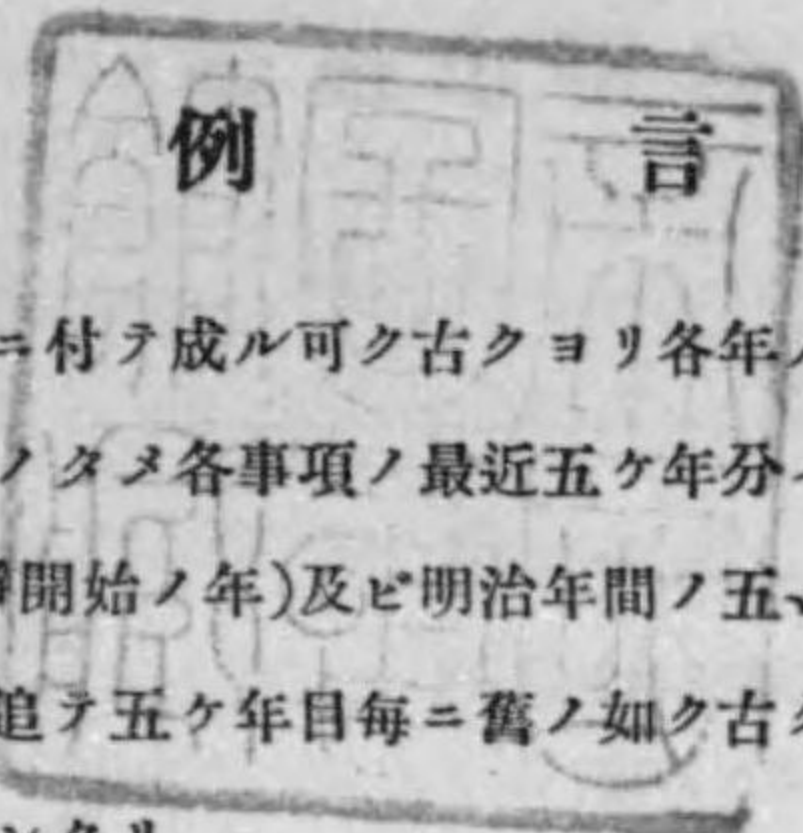 例言
ニ付テ成ル可ク古クヨリ各年ノ
ノタメ各事項ノ最近五ケ年分
開始ノ年)及ビ明治年間ノ五
追テ五ケ年目毎ニ舊ノ如ク古ク